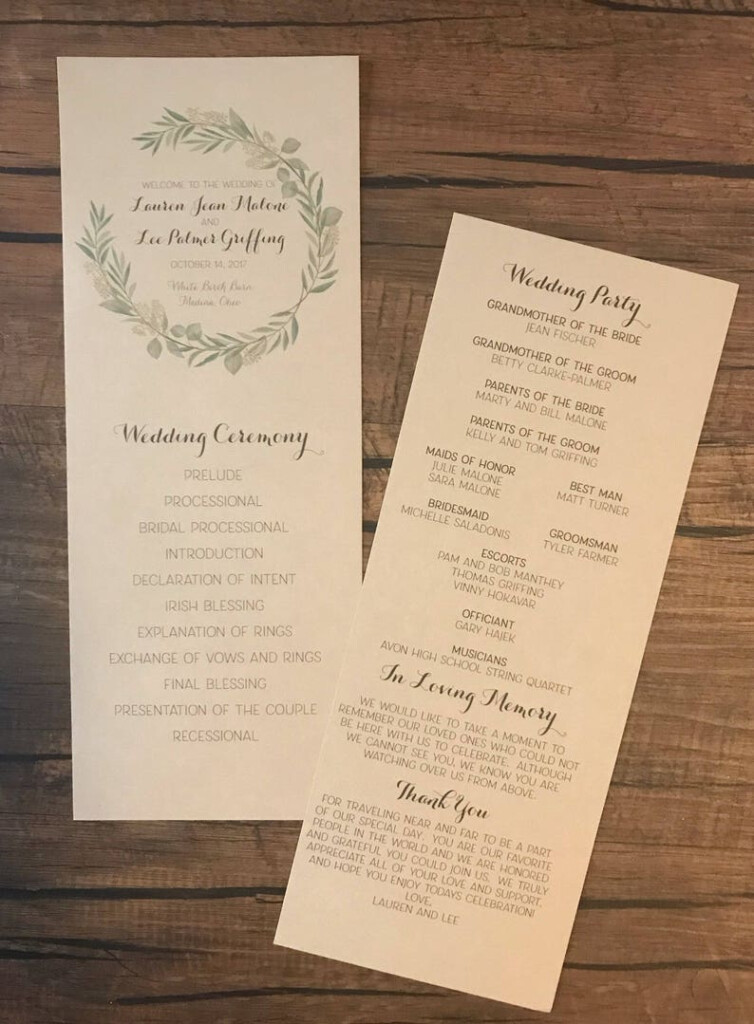 WELCOME TO THE WEDDING OF
Lauren Jean Malone
AND
Lee Palmer Griffing
OCTOBER 14, 2017
White Birch Barn
Medina, Ohio
Wedding Ceremony
PRELUDE
PROCESSIONAL
BRIDAL PROCESSIONAL
INTRODUCTION
DECLARATION OF INTENT
IRISH BLESSING
EXPLANATION OF RINGS
EXCHANGE OF VOWS AND RINGS
FINAL BLESSING
PRESENTATION OF THE COUPLE
RECESSIONAL
Wedding Party
GRANDMOTHER OF THE BRIDE
JEAN FISCHER
GRANDMOTHER OF THE GROOM
BETTY CLARKE-PALMER
PARENTS OF THE BRIDE
MARTY AND BILL MALONE
PARENTS OF THE GROOM
KELLY AND TOM GRIFFING
MAIDS OF HONOR
JULIE MALONE
SARA MALONE
BEST MAN
MATT TURNER
BRIDESMAID
MICHELLE SALADONIS
GROOMSMAN
TYLER FARMER
ESCORTS
PAM AND BOB MANTHEY
THOMAS GRIFFING
VINNY HOKAVAR
OFFICIANT
GARY HAJEK
MUSICIANS
AVON HIGH SCHOOL STRING QUARTET
In Loving Memory
WE WOULD LIKE TO TAKE A MOMENT TO
REMEMBER OUR LOVED ONES WHO COULD NOT
BE HERE WITH US TO CELEBRATE. ALTHOUGH
WE CANNOT SEE YOU, WE KNOW YOU ARE
WATCHING OVER US FROM ABOVE.
Thank You
FOR TRAVELING NEAR AND FAR TO BE A PART
OF OUR SPECIAL DAY. YOU ARE OUR FAVORITE
PEOPLE IN THE WORLD AND WE ARE HONORED
AND GRATEFUL YOU COULD JOIN US. WE TRULY
APPRECIATE ALL OF YOUR LOVE AND SUPPORT,
AND HOPE YOU ENJOY TODAYS CELEBRATION!
LOVE,
LAUREN AND LEE